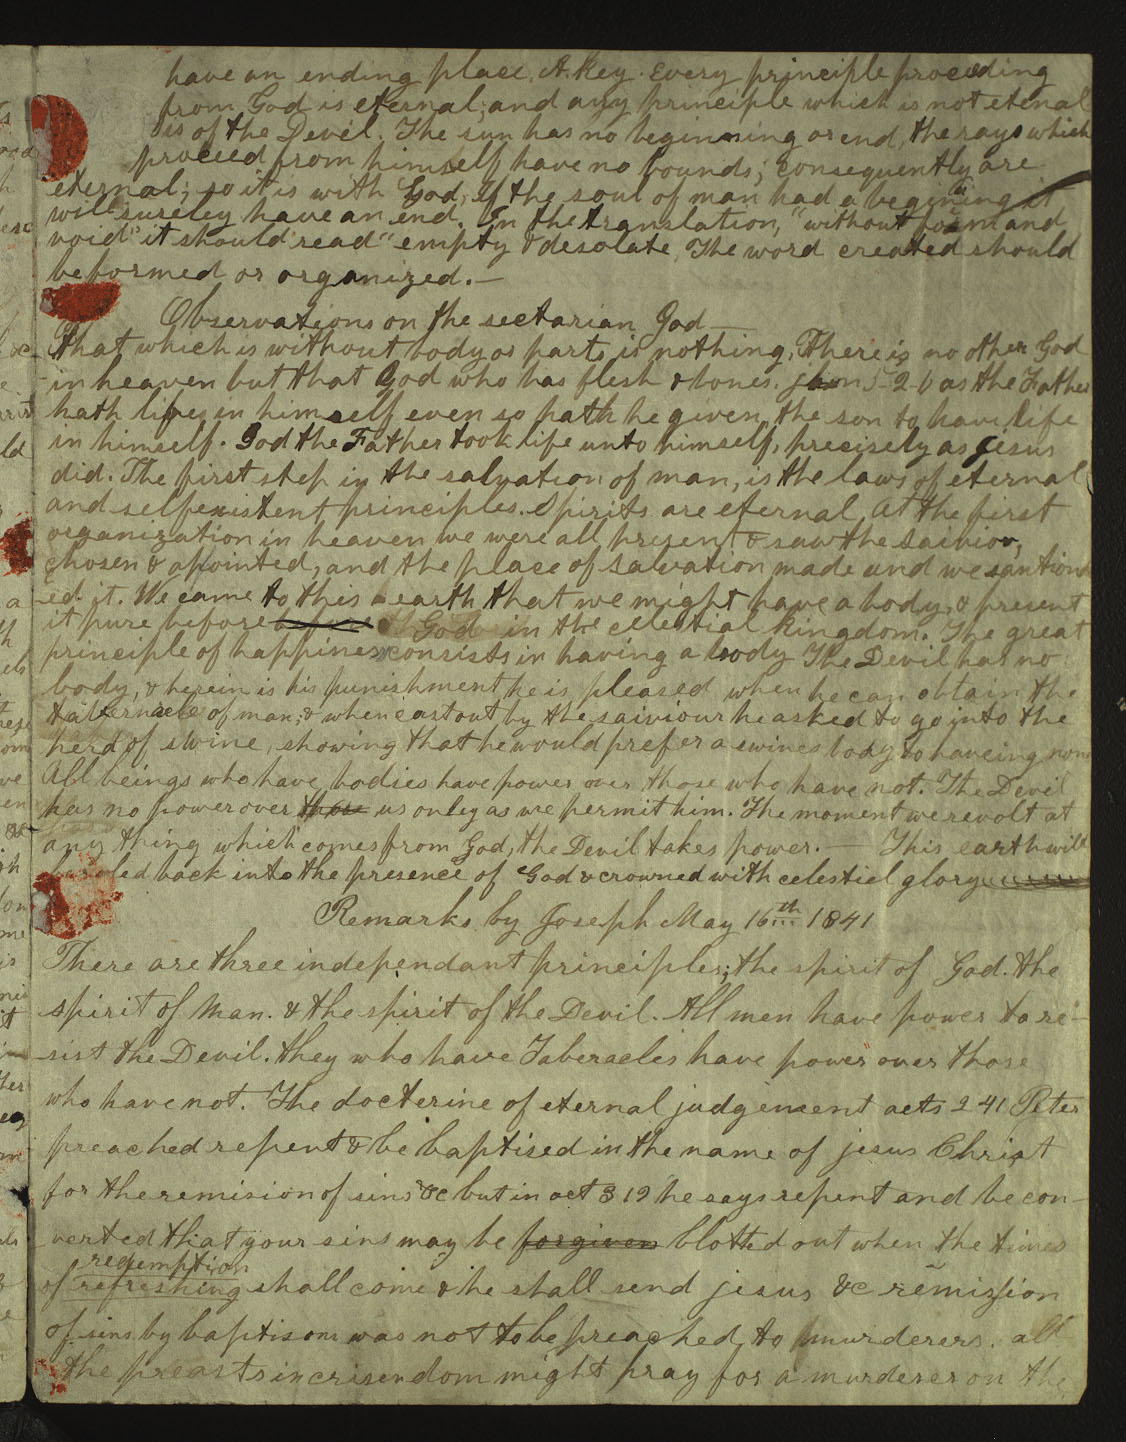 have an ending place, A. key. Every principle proceeding
from God is eternal, and any principle which is not eternal
is of the Devil. The sun has no beginning or end, the rays which
proceed from himself have no bounds, consequently are
eternal; so it is with God, If the soul of man had a begining it
will sureley have an end. In the translation, "without form and
void" it should read "empty & desolate, The word created should
be formed or organized. —
Observations on the sectarian God —
That which is without body or parts is nothing. There is no other God
in heaven but that God who has flesh & bones. John 5-26 as the Father
hath life in himself even so hath he given the son to have life
in himself. God the Father took life unto himself, precisely as jesus
did. The first step in the salvation of man, is the laws of eternal
and selfexistent principles. Spirits are eternal, at the first
organization in heaven we were all present & saw the saivior,
chosen & apointed, and the place of salvation made and we santion
ed it. We came to this earth that we might have a body, & present
it pure before God in the celestial kingdom. The great
principle of happiness consists in having a body The Devil has no
body, & herein is his punishment he is pleased when he can obtain the
tabernacle of man; & when cast out by the saiviour he asked to go into the
herd of swine, showing that he would prefer a swines body to haveing none
All beings who have bodies have power over those who have not. The Devil
has no power over those us onley as we permit him. The moment we revolt at
any thing which comes from God, the Devil takes power. — This earth will
be roled back into the presence of God & crowned with celestiel glory
Remarks by Joseph May 16th 1841
There are three independant principles; the spirit of God. the
spirit of Man. & the spirit of the Devil. All men have power to re-
sist the Devil. they who have Taberacles have power over those
who have not. The docterine of eternal judgement acts 2 41 Peter
preached repent & be baptised in the name of jesus Christ
for the remision of sins &c but in act 3 19 he says repent and be con-
verted that your sins may be forgiven blotted out when the times
redemption
of refreshing shall come & he shall send jesus &c remission
of sins by baptism was not to be preached to murderers. all
the preasts in crisendom might pray for a murderer on the